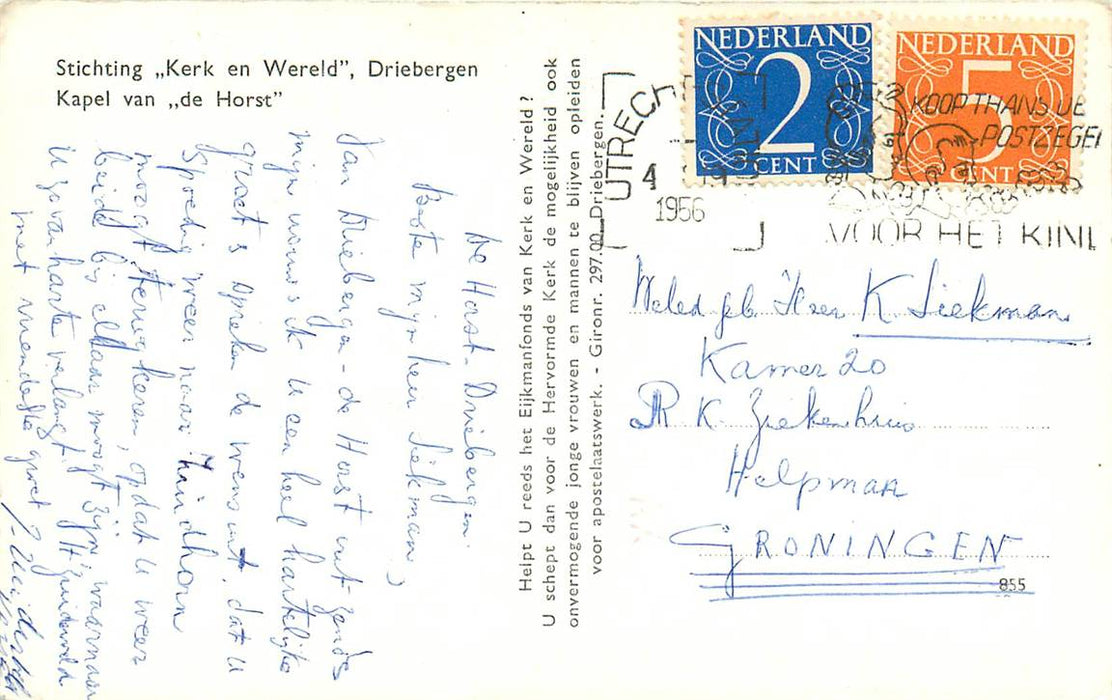 Stichting „Kerk en Wereld”, Driebergen
Kapel van „de Horst”
De Horst - Driebergen.
Beste mijnheer Siekman,
Van Driebergen - de Horst uit zende
mijn vrouw & ik u een heel hartelijke
groet & spreken de wens uit, dat u
spoedig weer naar Zuidhorn
moogt terugkeren, opdat u weer
beide bij elkaar moogt zijn, waarnaar
u zo van harte verlangt.
met vriendelijke groet
Helpt U reeds het Eijkmanfonds van Kerk en Wereld ?
U schept dan voor de Hervormde Kerk de mogelijkheid ook
onvermogende jonge vrouwen en mannen te blijven opleiden
voor apostelaatswerk. - Gironr. 297.00 Driebergen.
NEDERLAND
2
CENT
NEDERLAND
5
CENT
UTRECH
4
1956
KOOP THANS UE
POSTZEGE
VOOR HET KIN
Weled. geb. Heer K Siekman
Kamer 20
R K Ziekenhuis
Helpman
GRONINGEN
855